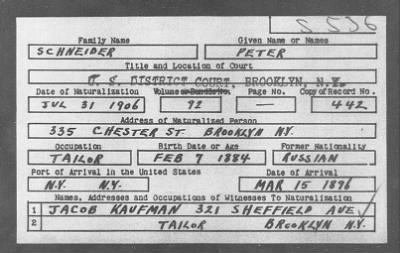 S 536
Family Name Given Name or Names
SCHNEIDER PETER
Title and Location of Court
U. S. DISTRICT COURT, BROOKLYN, N.Y.
Date of Naturalization Volume or Bundle No. Page No. Copy of Record No.
JUL 31 1906 92 — 442
Address of Naturalized Person
335 CHESTER ST BROOKLYN NY.
Occupation Birth Date or Age Former Nationality
TAILOR FEB 7 1884 RUSSIAN
Port of Arrival in the United States Date of Arrival
N.Y. N.Y. MAR 15 1896
Names, Addresses and Occupations of Witnesses To Naturalization
1 JACOB KAUFMAN 321 SHEFFIELD AVE
2 TAILOR BROOKLYN N.Y.